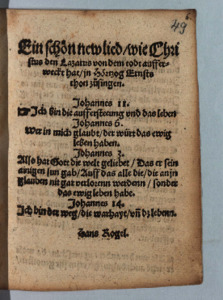 49
Ein schön new lied/wie Chri
stus den Lazarus von dem todt auffer-
weckt hat/in Hörtzog Ernsts
thon zůsingen.
Johannes 11.
Ich bin die auffersteeung vnd das leben
Johannes 6.
Wer in mich glaubt/der würt das ewig
leben haben.
Johannes 3.
Also hat Gott die welt geliebet/Das er sein
ainigen sun gab/Auff das alle die/die an jn
glauben nit gar verlorenn werdenn/sonder
das ewig leben habe.
Johannes 14.
Ich bin der weg/die warhayt/vñ dz lebenn.
Hans Kogel.